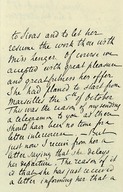 to Sivas and to let her
resume the work there with
Miss Zenger. Of course we
accepted with great pleasure
and gratefulness her offer.
She had planned to start from
Marseilles the 5th of October.
This was the reason of my sending
a telegram to you as then
should have been no time for a
letter intervenem - But
just now I receive from her a
letter saying that she delays
her departure. The reason of it
is that she has just received
a letter informing her that a